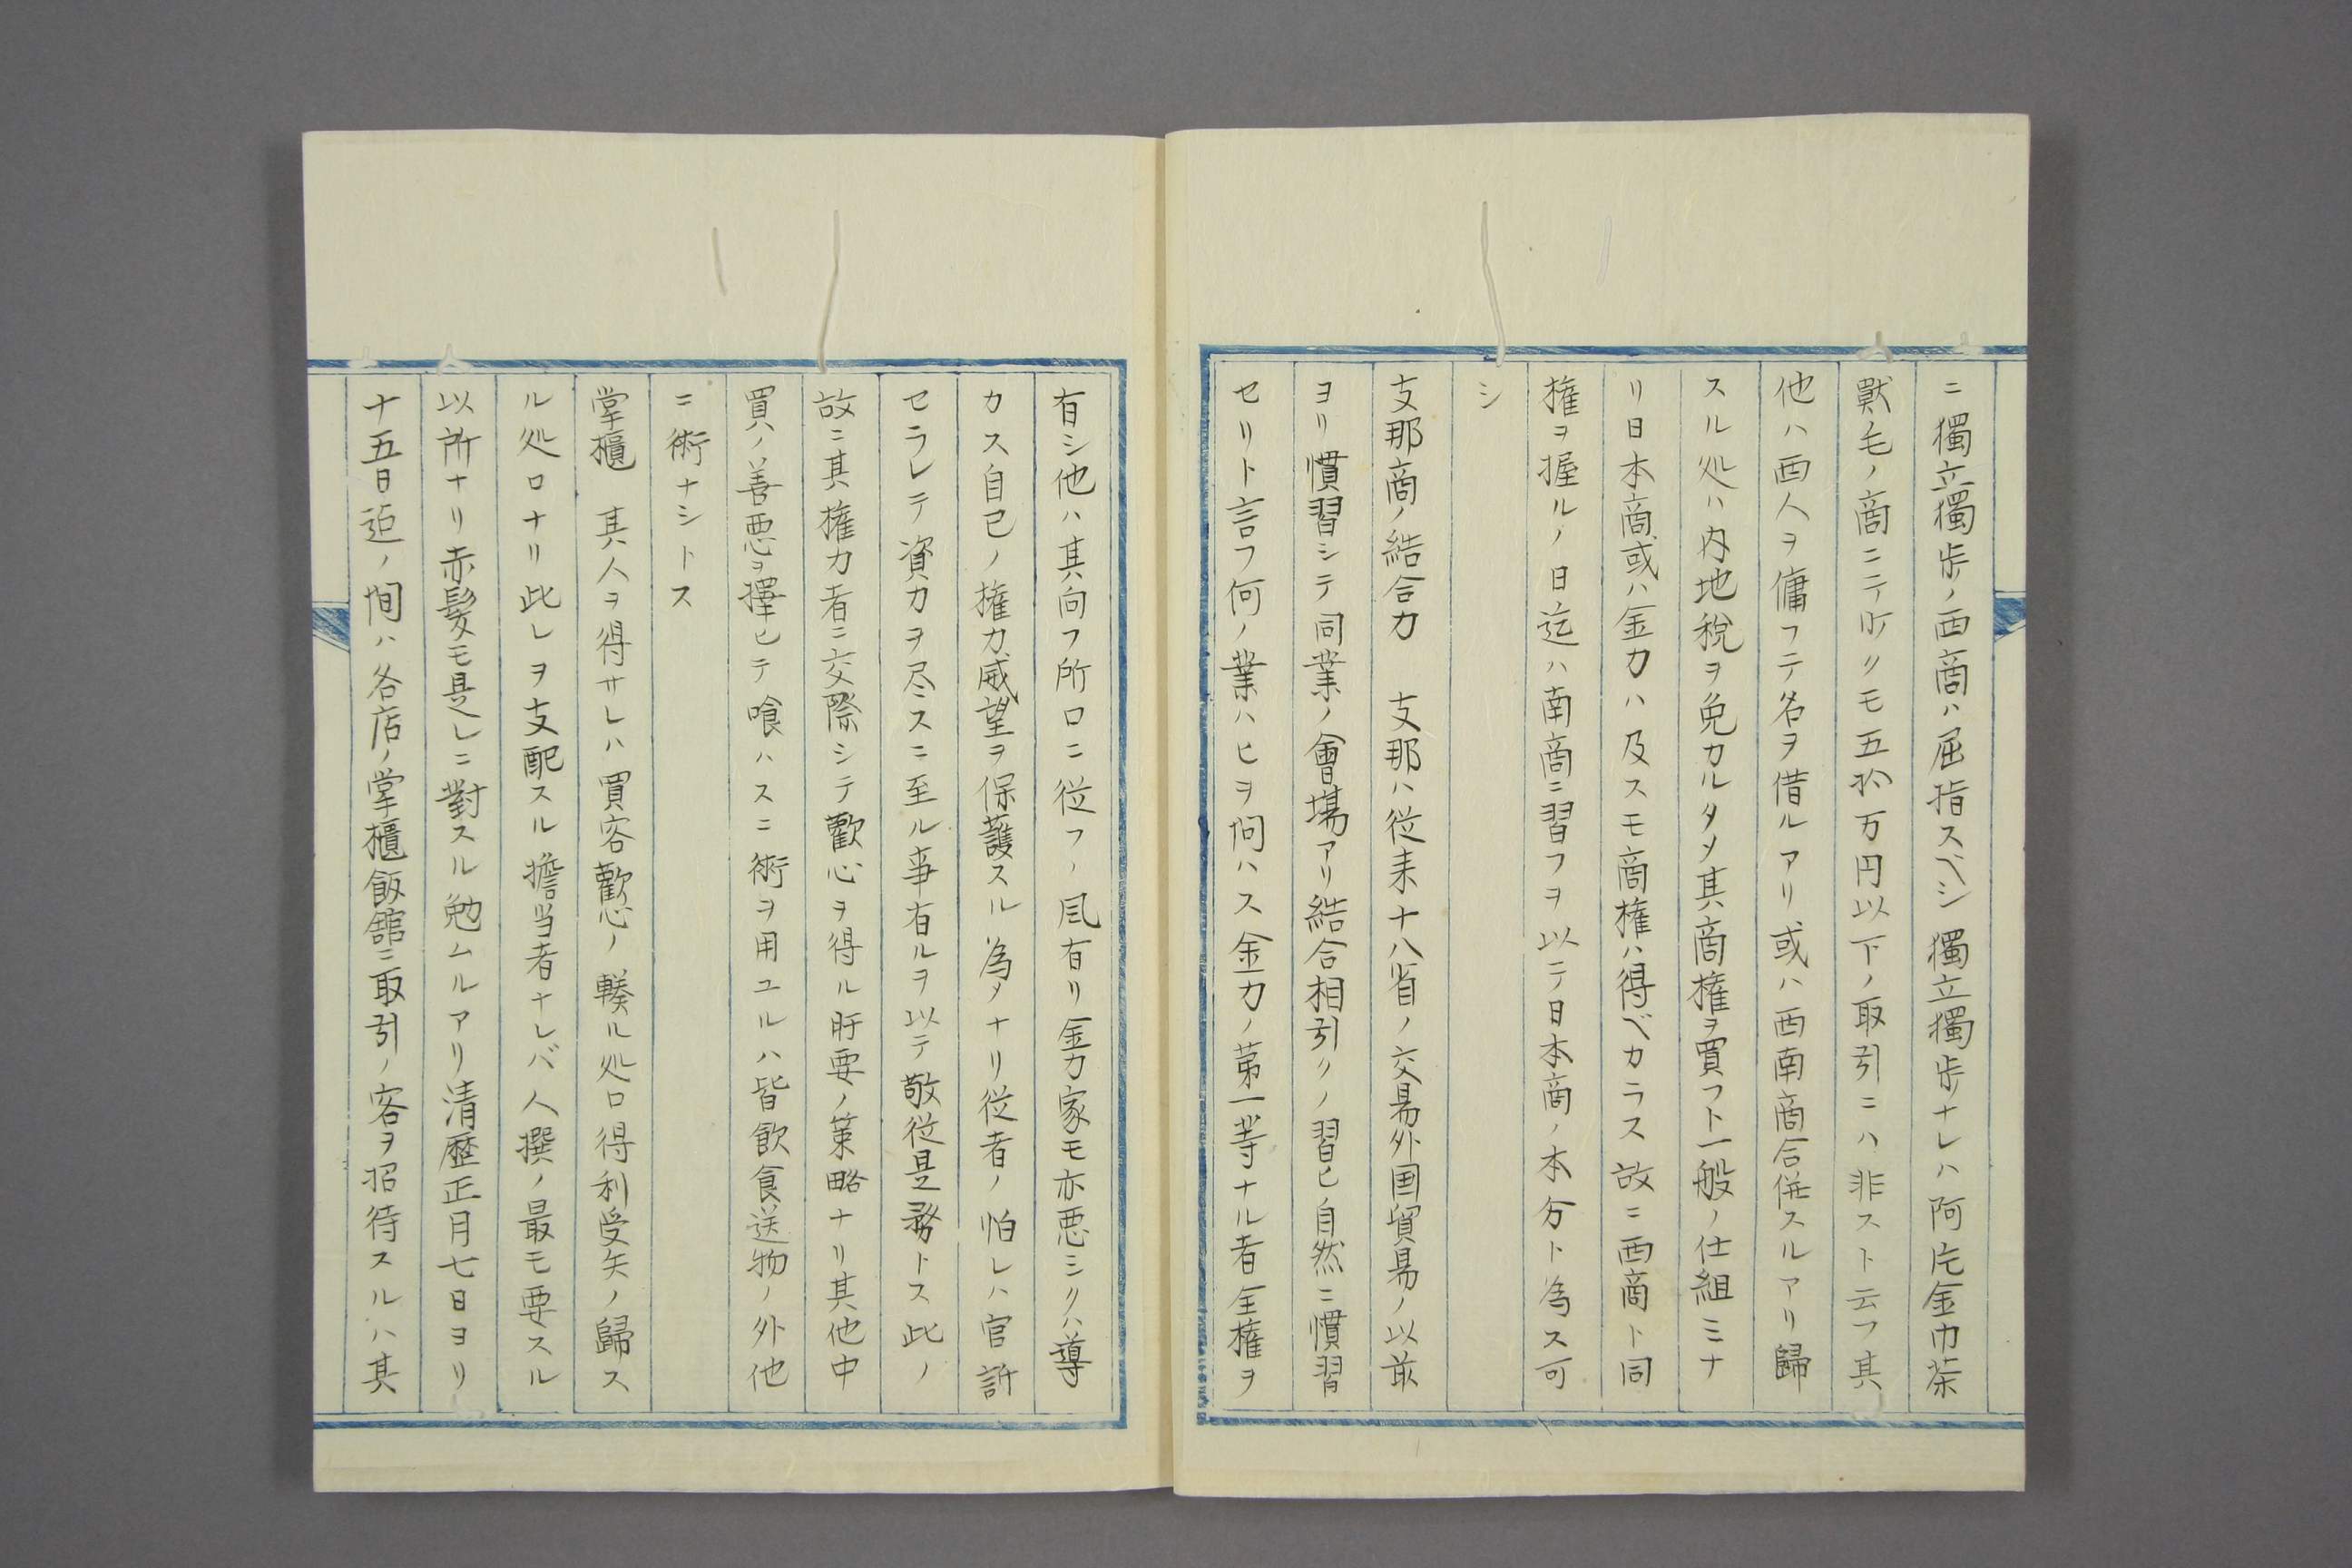 ニ獨立獨歩ノ西商ハ屈指スベシ獨立獨歩ナレハ阿片金巾茶
獸毛ノ商ニテ少クモ五拾万円以下ノ取引ニハ非スト云フ其
他ハ西人ヲ傭フテ名ヲ借ルアリ或ハ西南商合併スルアリ歸
スル処ハ内地税ヲ免カルタメ其商権ヲ買フト一般ノ仕組ミナ
リ日本商或ハ金力ハ及スモ商権ハ得ベカラス故ニ西商ト同
権ヲ握ルノ日迄ハ南商ニ習フヲ以テ日本商ノ本分ト為ス可
シ
支那商ノ結合力　支那ハ從来十八省ノ交易外国貿易ノ以前
ヨリ慣習シテ同業ノ會場アリ結合相引クノ習ヒ自然ニ慣習
セリト言フ何ノ業ハヒヲ问ハス金力ノ第一等ナル者全権ヲ
有シ他ハ其向フ所ロニ從フノ風有リ金力家モ亦悪シクハ導
カス自己ノ権力威望ヲ保護スル為メナリ從者ノ怕レハ官許
セラレテ資力ヲ尽スニ至ル事有ルヲ以テ敬從是務トス此ノ
故ニ其権力者ニ交際シテ歡心ヲ得ル肝要ノ策略ナリ其他中
買ノ善悪ヲ擇ヒテ喰ハスニ術ヲ用ユルハ皆飲食送物ノ外他
ニ術ナシトス
掌櫃　其人ヲ得サレハ買客歡心ノ輳ル処ロ得利受矢ノ歸ス
ル処ロナリ此レヲ支配スル擔当者ナレバ人撰ノ最モ要スル
以所ナリ赤髪モ是レニ對スル勉ムルアリ清歴正月七日ヨリ
十五日迄ノ间ハ各店ノ掌櫃飯館ニ取引ノ客ヲ招待スルハ其